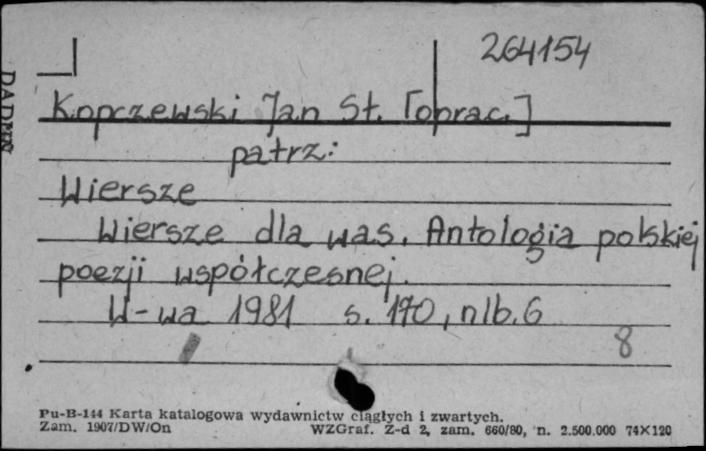 264154
DADMN
Kopczewski Jan St. [oprac.]
patrz:
Wiersze
Wiersze dla was. Antologia polskiej
poezji współczesnej.
W-wa 1981 s. 170, nlb. 6
8
Pu-B-144 Karta katalogowa wydawnictw ciągłych i zwartych.
Zam. 1907/DW/On WZGraf. Z-d 2, zam. 660/80, n. 2.500.000 74X120